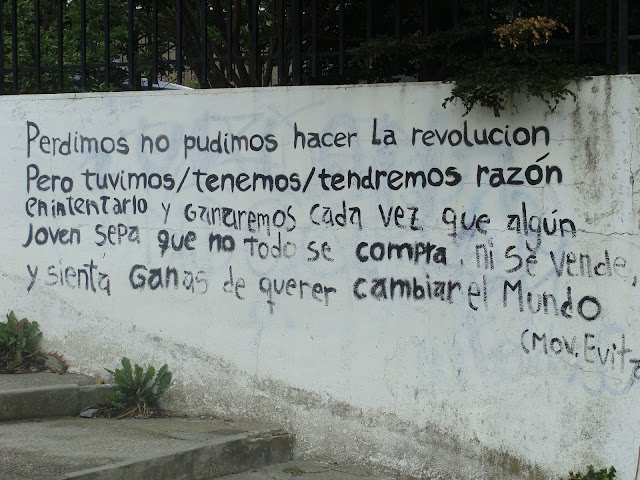 Perdimos no pudimos hacer La revolucion
Pero tuvimos/tenemos/tendremos razón
en intentarlo y Ganaremos cada vez que algún
Joven sepa que no todo se compra, ni se vende,
y sienta Ganas de querer cambiar el Mundo
(Mov. Evita